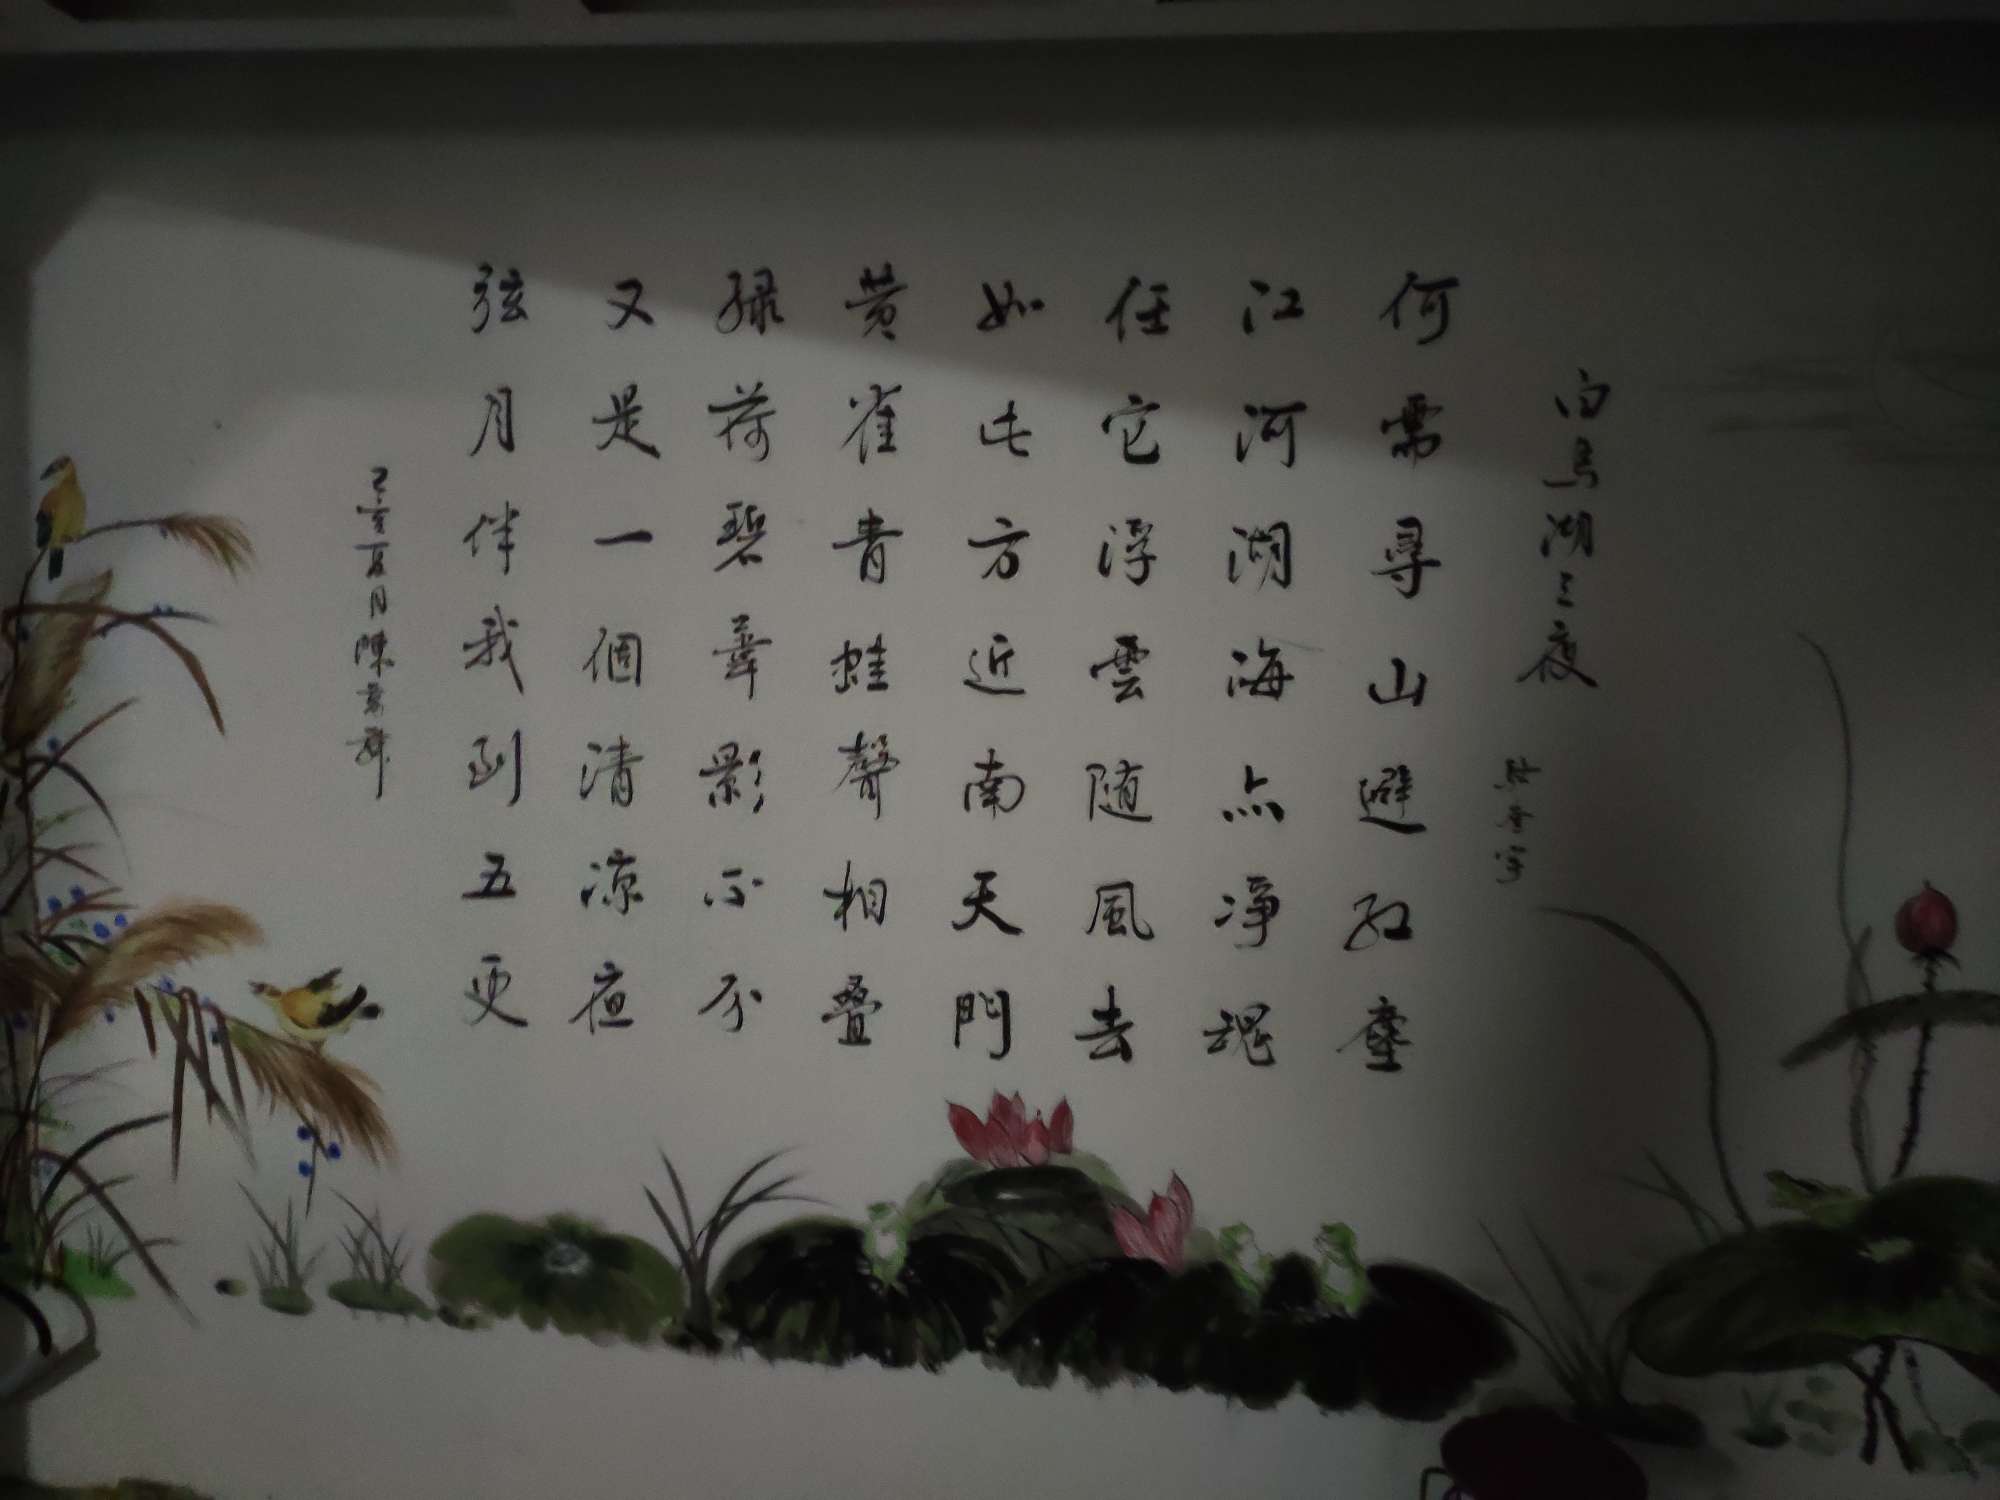 白馬湖之夜
何需尋山避紅塵
江河湖海点淨魂
任它浮雲随風去
如此方近南天門
黄雀青蛙聲相叠
緑荷碧葦影不分
又是一個清凉夜
弦月伴我到五更
己亥夏月陳